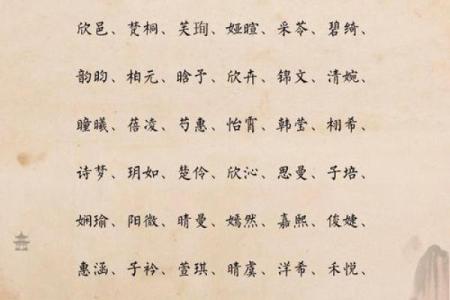 欣邑、梵桐、芙珣、娅暄、采苓、碧绮、
韵昀、柏元、晗予、欣卉、锦文、清婉、
瞳曦、蓓凌、芍惠、怡霄、韩莹、栩希、
诗梦、玥如、楚伶、欣沁、思曼、子培、
娴瑜、阳微、晴曼、嫣然、嘉熙、俊婕、
惠涵、子衿、萱琪、晴虞、洋希、禾悦、